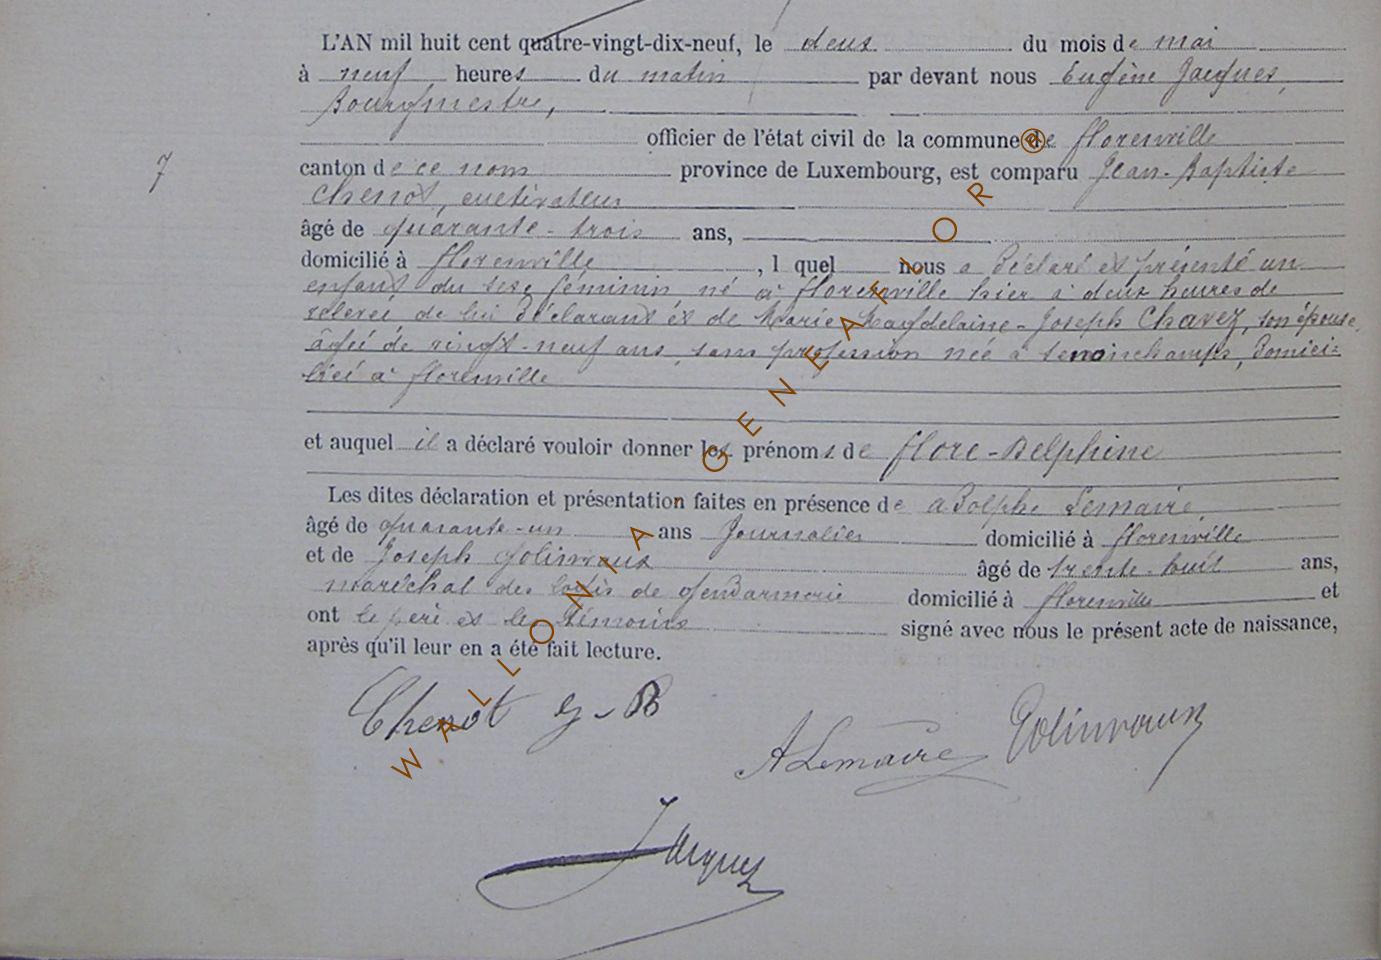 L'AN mil huit cent quatre-vingt-dix-neuf, le deux du mois de mai
à neuf heures du matin par devant nous Eugène Jacques,
Bourgmestre,
officier de l'état civil de la commune de florenville
7
canton de ce nom province de Luxembourg, est comparu Jean-Baptiste
Chenot, cultivateur
âgé de quarante-trois ans,
domicilié à florenville, l quel nous a déclaré et présenté un
enfant du sexe féminin né à florenville hier à deux heures de
relevée de lui déclarant et de Marie Magdelaine-Joseph Chavez, son épouse,
âgée de vingt-neuf ans, sans profession née à Senonchamps, domici-
liée à florenville
et auquel il a déclaré vouloir donner les prénoms de flore-Delphine
Les dites déclaration et présentation faites en présence de adolphe Lemaire,
âgé de quarante-un ans Journalier domicilié à florenville
et de Joseph Golinvaux âgé de trente-huit ans,
maréchal des logis de gendarmerie domicilié à florenville et
ont le père et les témoins signé avec nous le présent acte de naissance,
après qu'il leur en a été fait lecture.
Chenot J-B
A Lemaire Golinvaux
Jacques
WALLONIA GENEAFLOR ®